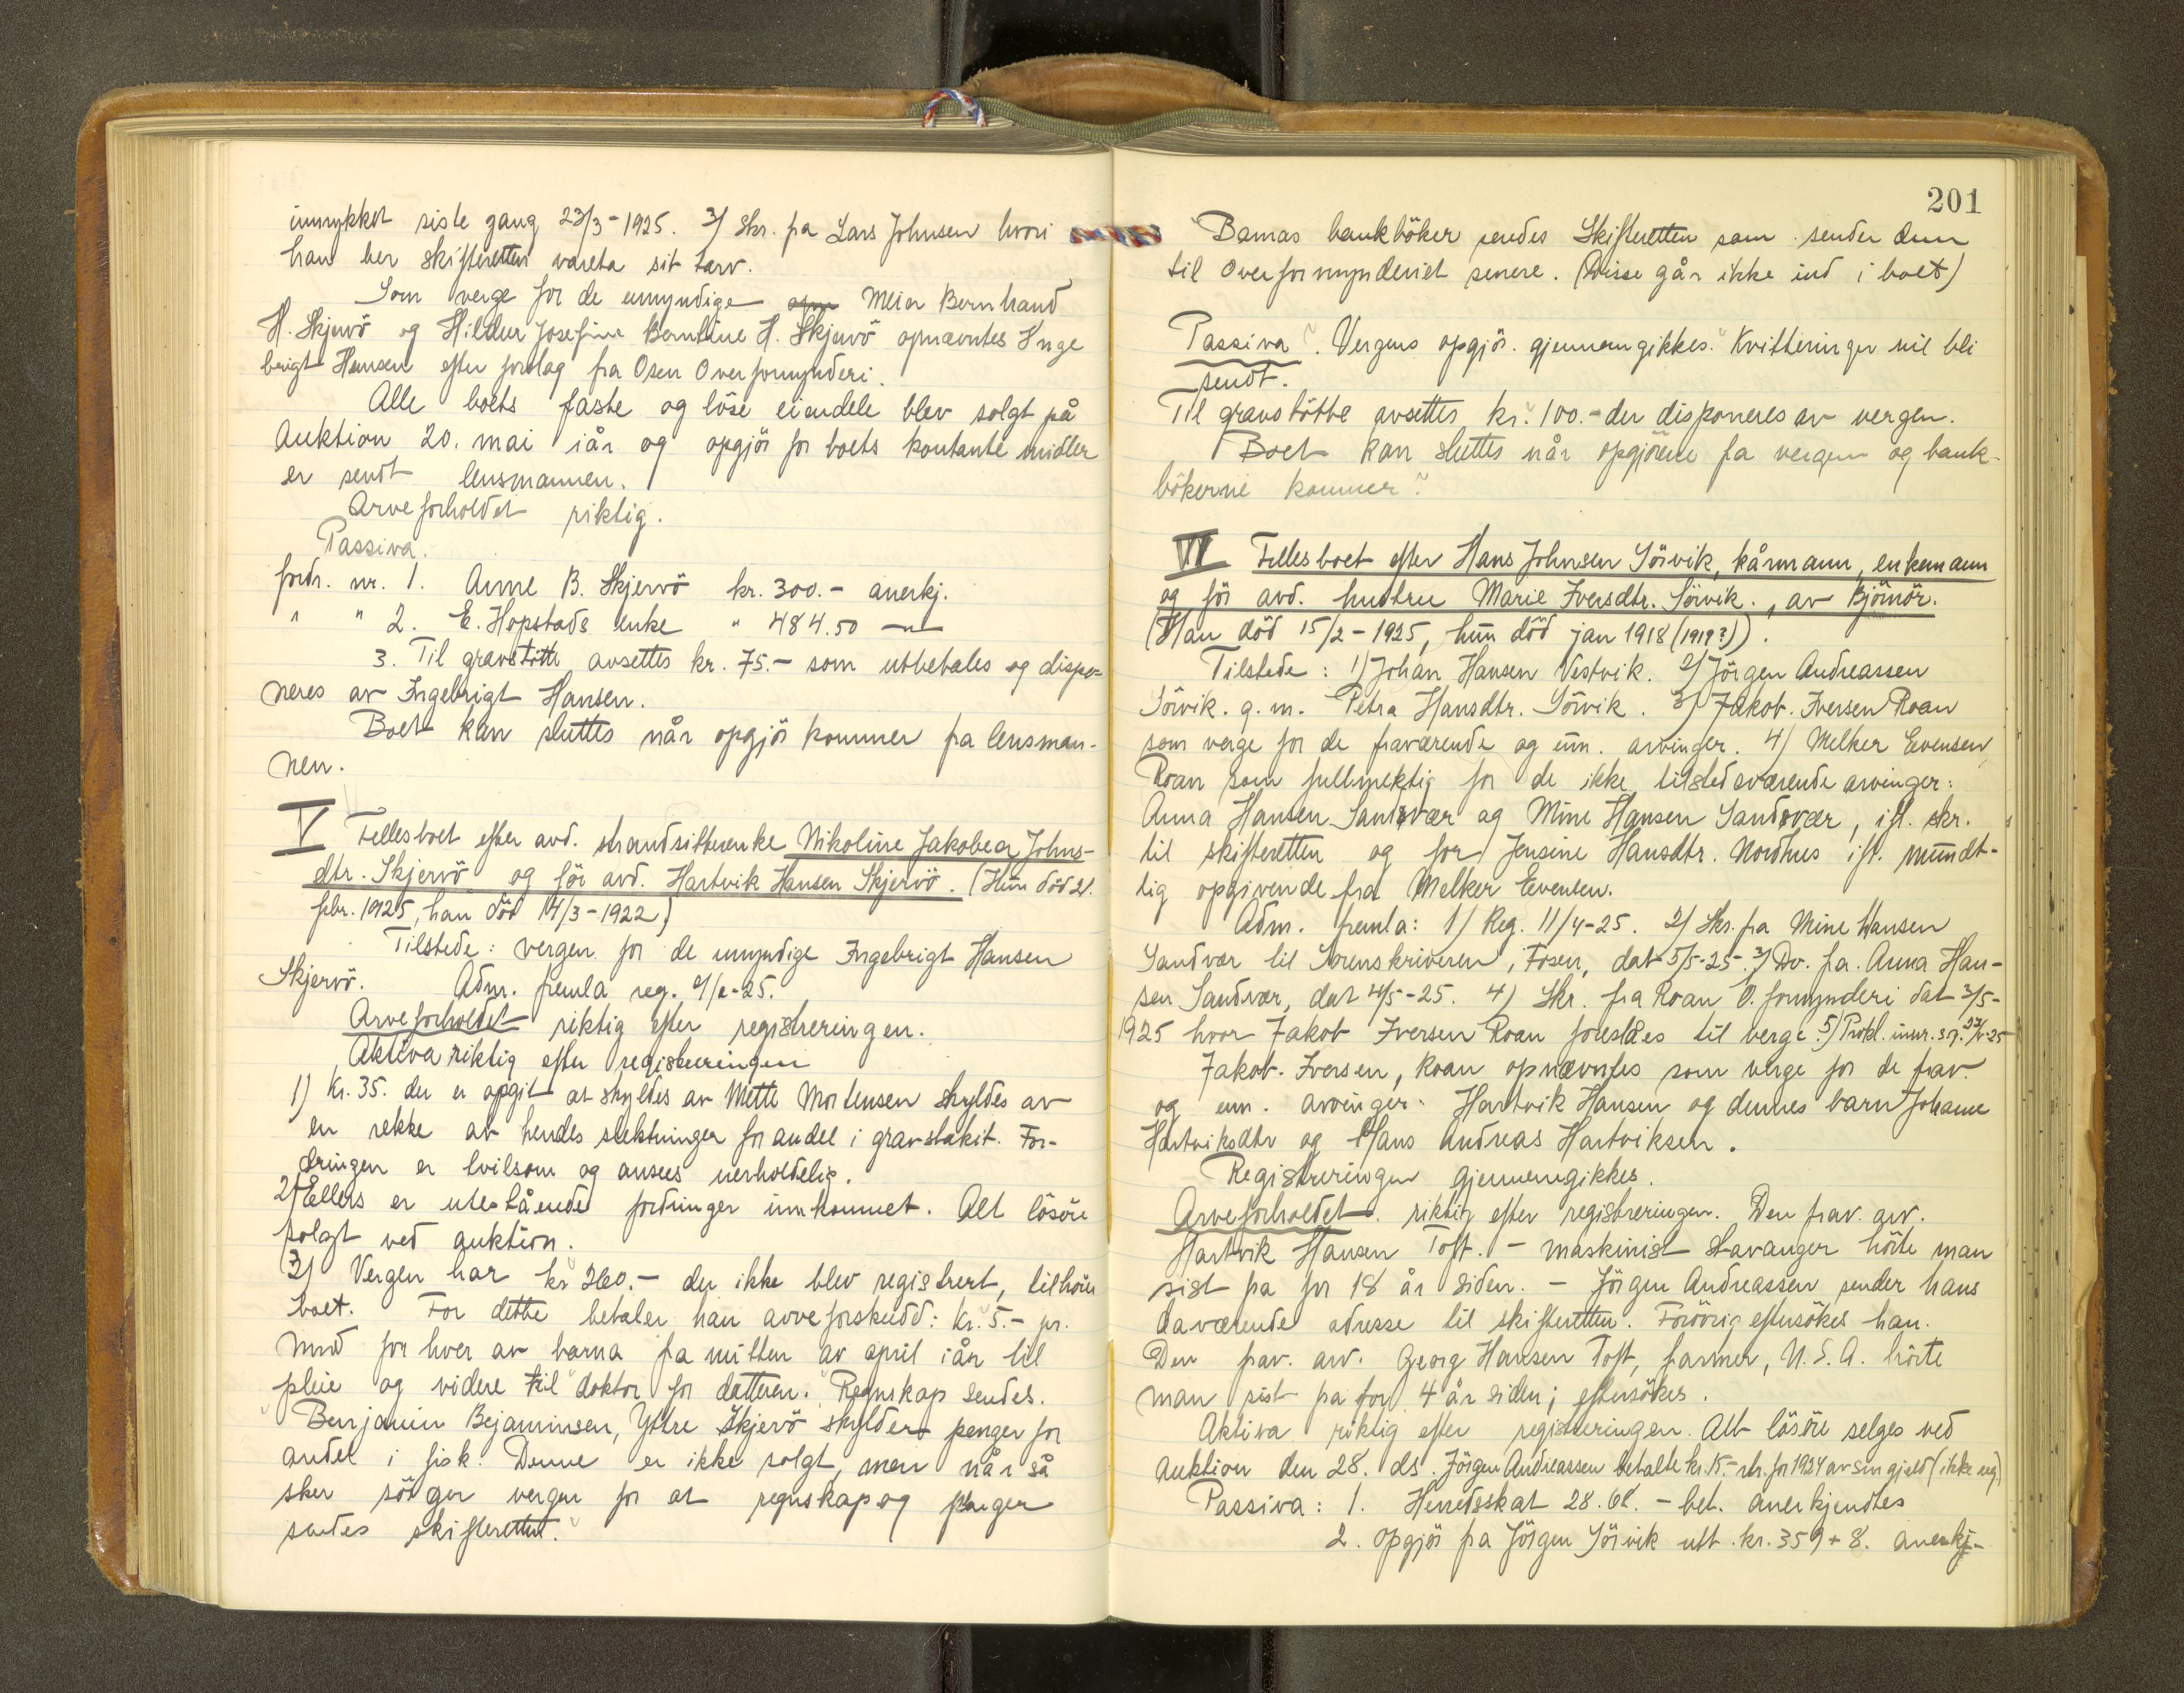 innrykket siste gang 23/3-1925. 3/ Skr. fra Lars Johnsen hvori
han ber skifteretten vareta sit tarv.
Som verge for de umyndige Meier Bernhard
H. Skjervö og Hildur Josefine Berntine H. Skjervö opnævntes Inge
brigt Hansen efter forslag fra Osen Overformynderi.
Alle boets faste og löse eiendele blev solgt på
Auktion 20. mai iår og opgjör for boets kontante midler
er sendt lensmannen.
Arveforholdet riktig.
Passiva.
fordr. nr. 1. Anne B. Skjervö kr. 300.- anerkj.
" " 2. E. Hopstads enke " 484.50 —"—
3. Til gravstötte avsettes kr. 75.- som utbetales og dispo-
neres av Ingebrigt Hansen.
Boet kan sluttes når opgjör kommer fra lensman-
nen.
V Fellesboet efter avd. strandsitterenke Nikoline Jakobea Johns-
dtr. Skjervö og för avd. Hartvik Hansen Skjervö. (Hun död 21.
febr. 1925, han död 14/3-1922)
Tilstede: vergen for de umyndige Ingebrigt Hansen
Skjervö. Adm. fremla reg.
Arveforholdet riktig efter registreringen.
Aktiva riktig efter registreringen
1) Kr. 35. der er opgit at skyldes av Mette Mortensen skyldes av
en rekke av hendes slektninger for andel i gravstakit. For-
dringen er tvilsom og ansees uerholdelig.
2) Ellers er utestående fordringer innkommet. Alt lösöre
solgt ved auktion.
3) Vergen har kr 260.- der ikke blev registrert, tilhörer
boet. For dette betaler han arveforskudd: Kr. 5.- pr.
mnd for hver av barna fra mitten av april iår til
pleie og videre til doktor for datteren. Regnskap sendes.
Benjamin Bejaminsen, Yttre Skjervö skylder penger for
andel i fisk. Denne er ikke solgt, men når så
sker sörger vergen for at regnskap og penger
sendes skifteretten.
201
Barnas bankböker sendes Skifteretten som sender dem
til Overformynderiet senere. (Disse går ikke ind i boet)
Passiva. Vergens opgjör gjennemgikkes. Kvitteringer vil bli
sendt.
Til gravstötte avsettes kr. 100.- der disponeres av vergen.
Boet kan sluttes når opgjörene fra vergen og bank-
bökerne kommer.
VI Fellesboet efter Hans Johnsen Sörvik, kårmann, enkemann
og för avd. hustru Marie Iversdtr. Sörvik, av Björnör.
(Han död 15/2-1925, hun död jan 1918 (1919?)).
Tilstede: 1) Johan Hansen Vestvik. 2) Jörgen Andreassen
Sörvik. g. m. Petra Hansdtr. Sörvik. 3) Jakob Iversen Roan
som verge for de fraværende og um. arvinger. 4) Melker Evensen,
Roan som fullmektig for de ikke tilstedeværende arvinger:
Anna Hansen Sandvær og Mine Hansen Sandsvær, ifl. skr.
til skifteretten og for Jensine Hansdtr. Nordnes ifl. mundt-
lig opgivende fra Melker Evensen.
Adm. fremla: 1) Reg. 11/4-25. 2) Skr. fra Mine Hansen
Sandvær til Sorenskriveren i Fosen, dat 5/5-25. 3) Do. fra Anna Han-
sen Sandvær, dat 4/5-25. 4) Skr. fra Roan O. formynderi dat 3/5-
1925 hvor Jakob Iversen Roan foreslåes til verge. 5) Prokl. innr. s.g.
Jakob Iversen, Roan opnævntes som verge for de frav.
og um. arvinger: Hartvik Hansen og dennes barn Johanne
Hartviksdtr og Hans Andreas Hartviksen.
Registreringen gjennemgikkes.
Arveforholdet riktig efter registreringen. Den frav. arv.
Hartvik Hansen Toft. - maskinist Stavanger hörte man
sist fra for 18 år siden. - Jörgen Andreassen sender hans
daværende adresse til skifteretten. Forövrig eftersökes han.
Den frav. arv. Georg Hansen Toft, farmer, U.S.A. hörte
man sist fra for 4 år siden; eftersökes.
Aktiva riktig efter registreringen. Alt lösöre selges ved
Auktion den 28. ds. Jörgen Andreassen betalte kr. 15.- for 1924 av sin gjeld (ikke reg.)
Passiva: 1. Herredsskat 28.68. - bet. anerkjendtes
2. Opgjör fra Jörgen Sörvik utl. kr. 359 + 8. anerkj-